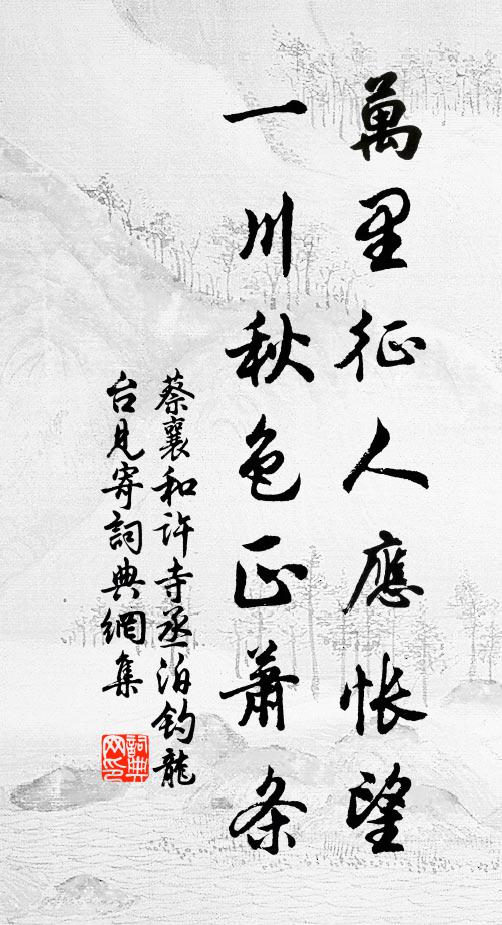 萬里征人應悵望
一川秋色正蕭条
蔡襄和許寺丞泊钓龍
台見寄詞典網集
詞典網印